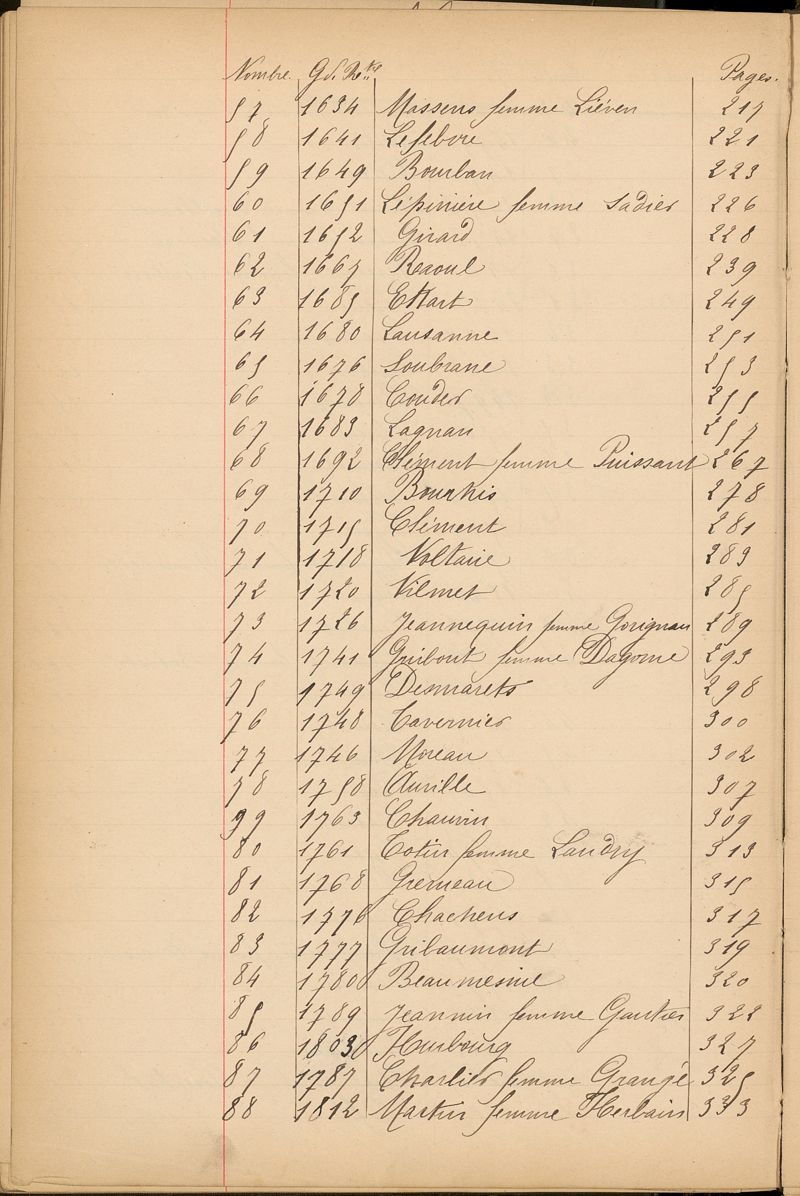 Nombre. Gd. Re. Nos Pages.
57 1634 Massens femme Liéven 217
58 1641 Lefebvre 221
59 1649 Bourban 223
60 1651 Lépinière femme Sadier 226
61 1652 Girard 228
62 1667 Raoul 239
63 1685 Ettart 249
64 1680 Lausanne 251
65 1676 Soubrane 253
66 1678 Couder 255
67 1683 Lagnan 257
68 1692 Clément femme Puissant 267
69 1710 Bourhis 278
70 1715 Clément 281
71 1718 Voltaire 283
72 1720 Vilmet 285
73 1726 Jeannequin femme Gorignan 289
74 1741 Guibout femme Dagorne 293
75 1749 Desmarets 298
76 1748 Tavernier 300
77 1746 Moreau 302
78 1758 Auville 307
79 1763 Chauvin 309
80 1761 Totin femme Landry 313
81 1768 Gremeau 315
82 1776 Chachens 317
83 1777 Gribaumont 319
84 1780 Beaumesnil 320
85 1789 Jeannin femme Gautier 322
86 1803 Humbourg 327
87 1787 Charlier femme Grangé 325
88 1812 Martin femme Herbain 333